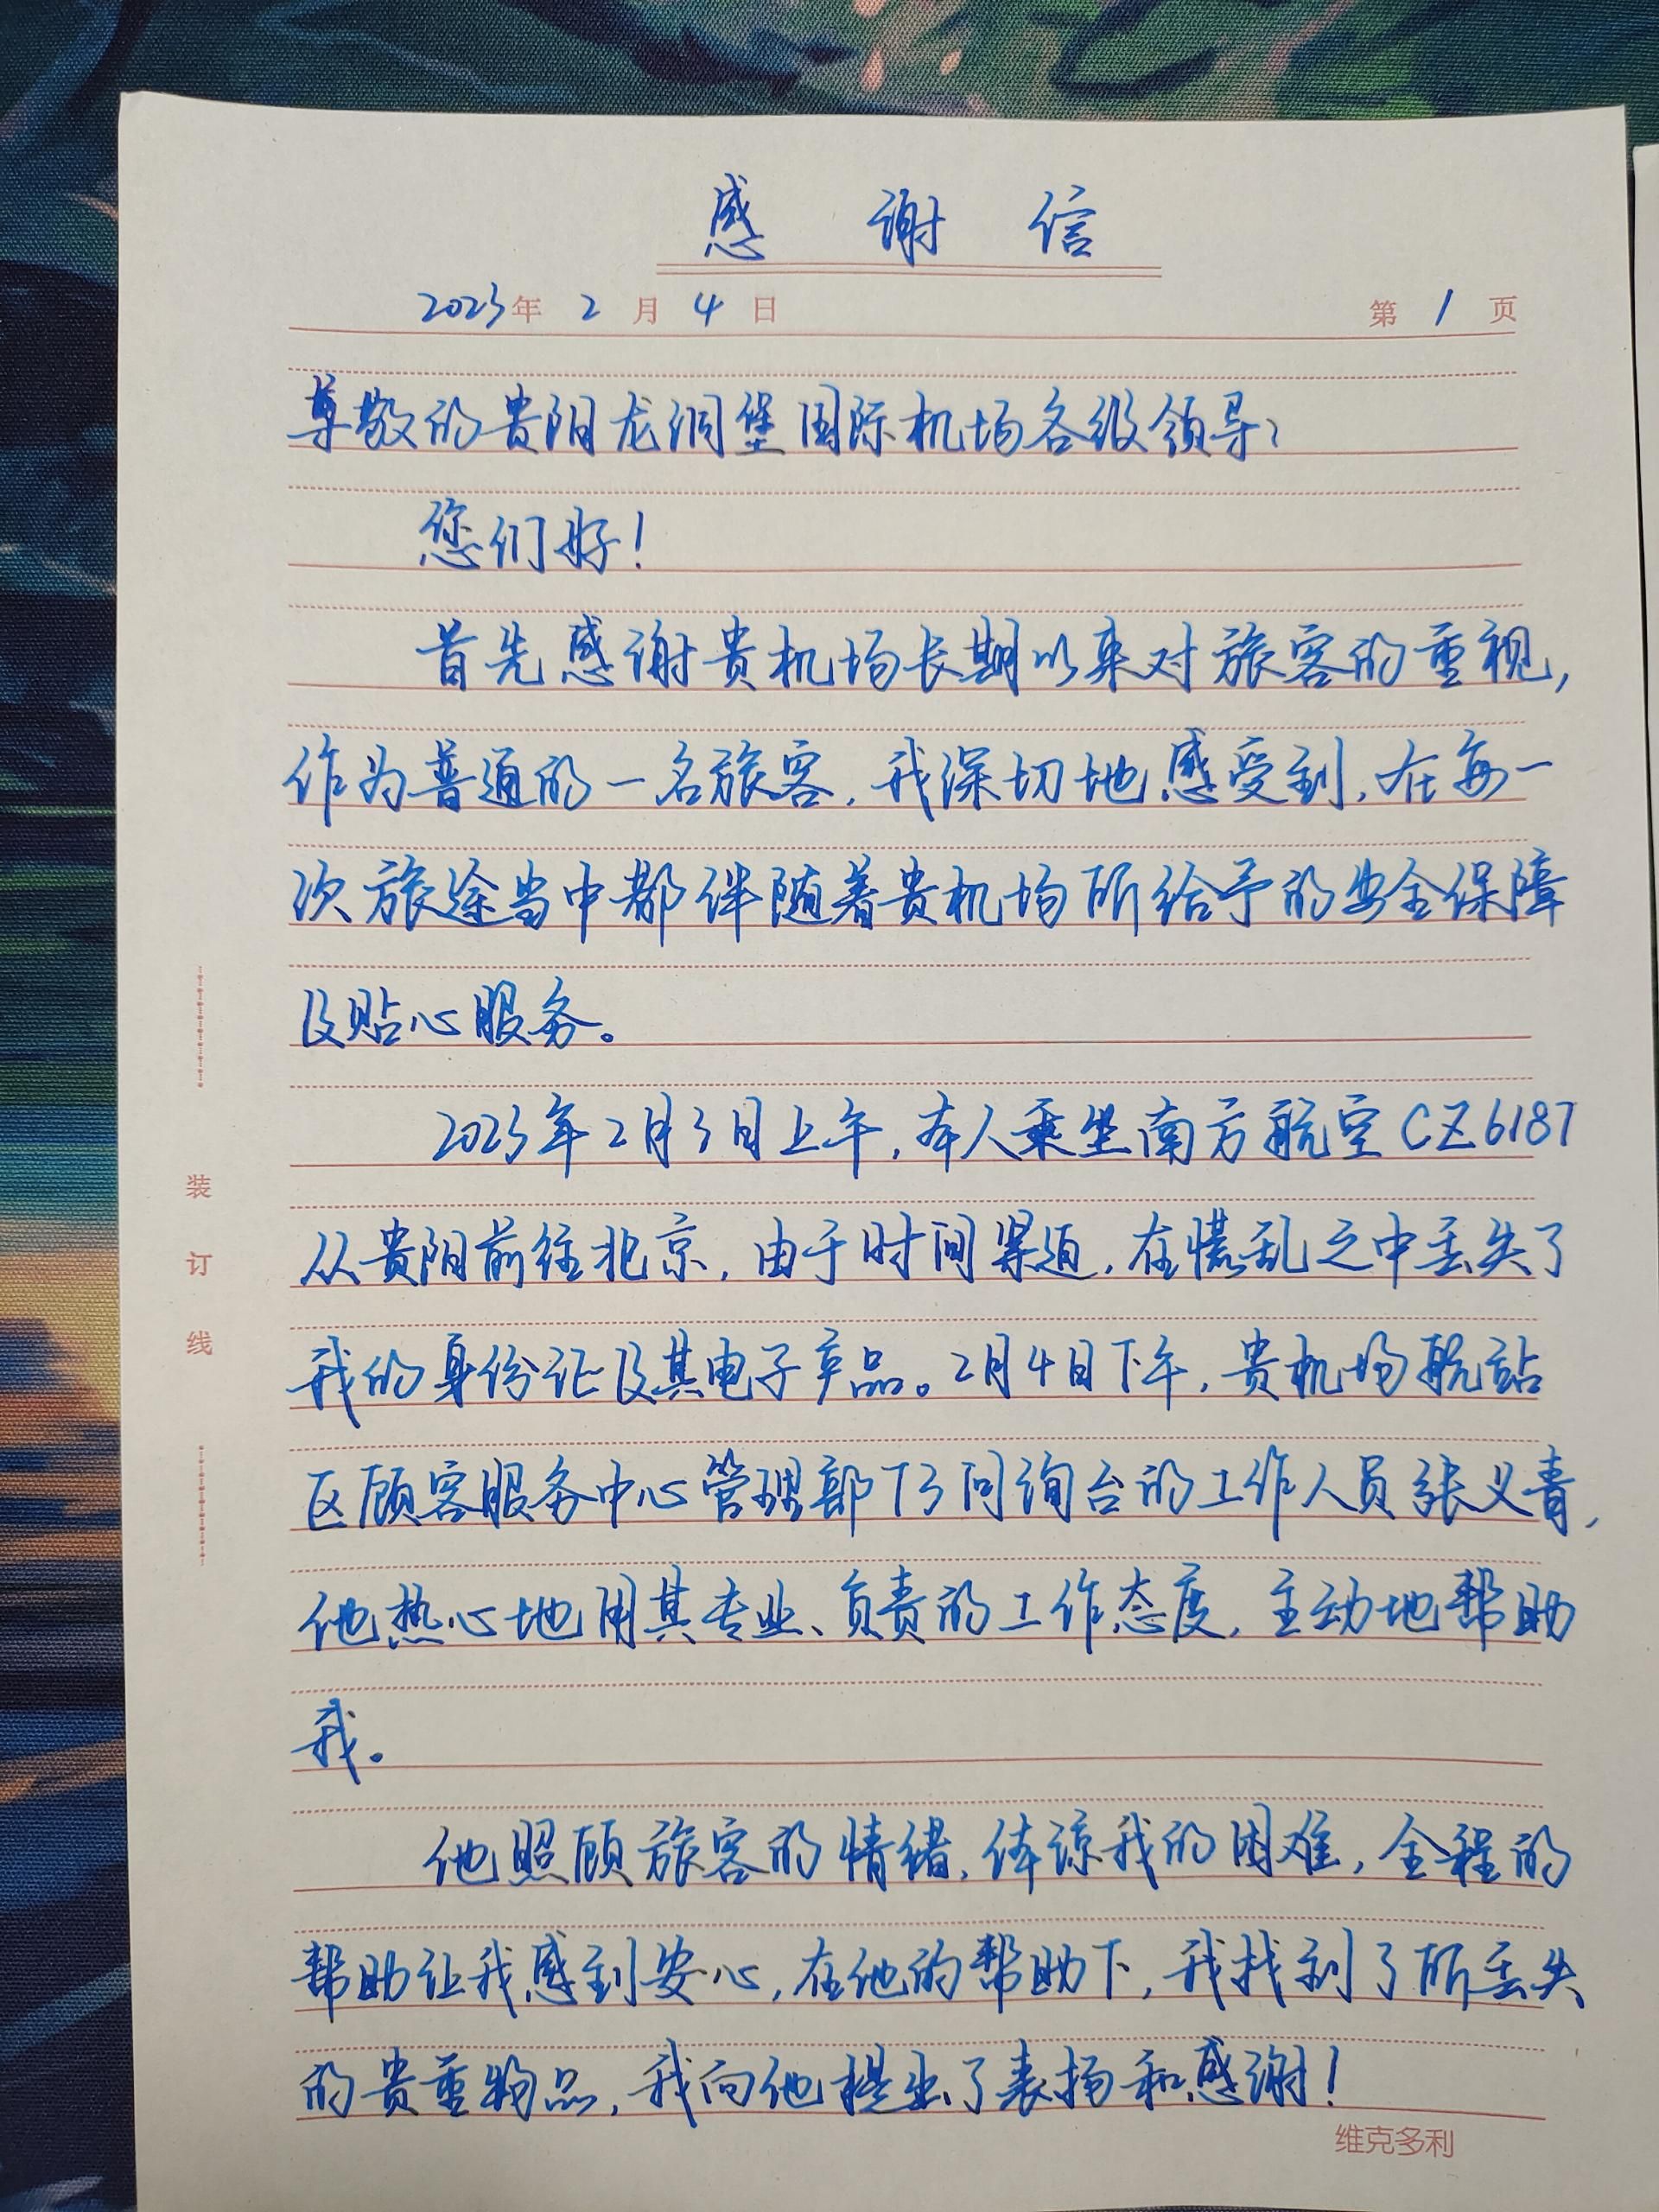 感谢信
2023年2月4日 第1页
尊敬的贵阳龙洞堡国际机场各级领导：
您们好！
首先感谢贵机场长期以来对旅客的重视，
作为普通的一名旅客，我深切地感受到，在每一
次旅途当中都伴随着贵机场所给予的安全保障
及贴心服务。
2023年2月3日上午，本人乘坐南方航空CZ6187
从贵阳前往北京，由于时间紧迫，在慌乱之中丢失了
我的身份证及其电子产品。2月4日下午，贵机场航站
区顾客服务中心管理部T3问询台的工作人员张义青，
他热心地用其专业、负责的工作态度，主动地帮助
我。
他照顾旅客的情绪，体谅我的困难，全程的
帮助让我感到安心，在他的帮助下，我找到了所丢失
的贵重物品，我向他提出了表扬和感谢！
装
订
线
维克多利